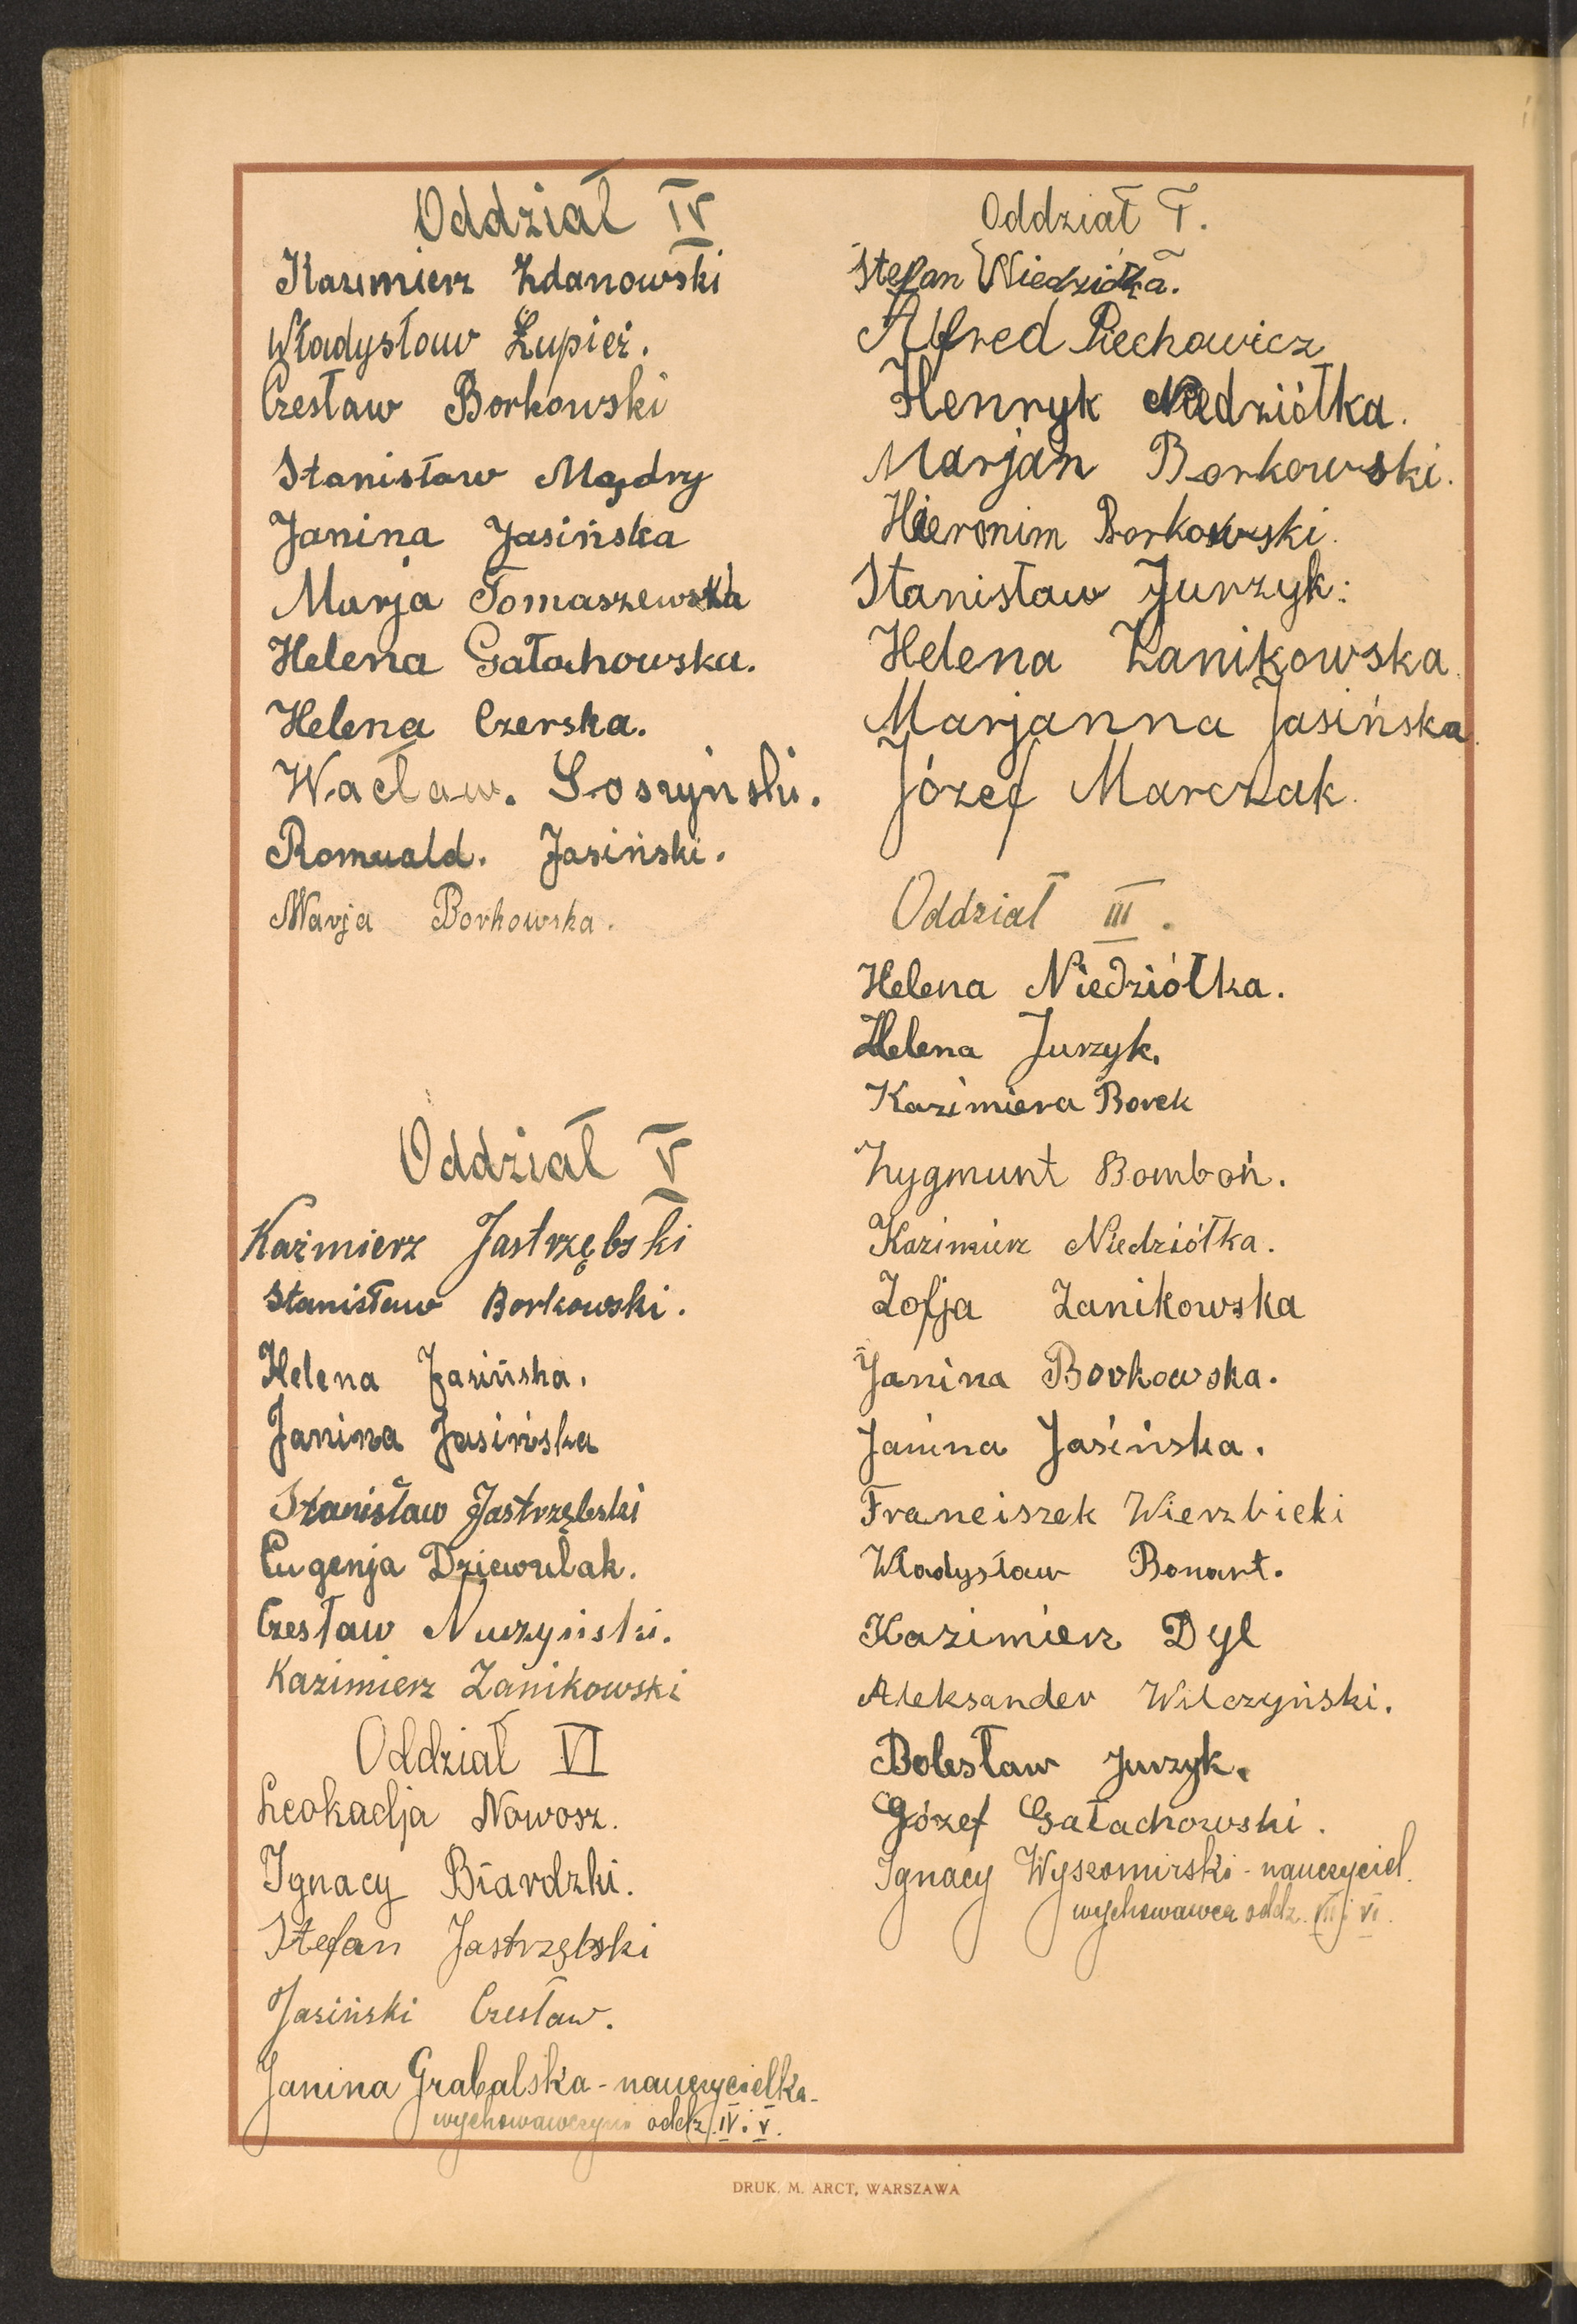 Oddział IV
Kazimierz Zdanowski
Władysław Łupież.
Czesław Borkowski
Stanisław Mądry
Janina Jasińska
Marja Tomaszewska
Helena Gałachowska.
Helena Czerska.
Wacław. Soszyński.
Romuald. Jasiński.
Marja Borkowska.
Oddział V
Kaźmierz Jastrzębski
Stanisław Borkowski.
Helena Jasińska.
Janina Jasińska
Stanisław Jastrzębski
Eugenja Dziewulak.
Czesław Muszyński.
Kazimierz Zanikowski
Oddział VI
Leokadja Nowosz.
Ignacy Biardzki.
Stefan Jastrzębski
Jasiński Czesław.
Janina Grabalska - nauczycielka -
wychowawczyni oddz. IV i V.
Oddział I.
Stefan Niedziółka.
Alfred Piechowicz
Henryk Niedziółka.
Marjan Borkowski.
Hieronim Borkowski.
Stanisław Jurzyk.
Helena Zanikowska.
Marjanna Jasińska.
Józef Marczak.
Oddział III.
Helena Niedziółka.
Helena Jurzyk.
Kazimiera Borek
Zygmunt Bomboń.
Kazimierz Niedziółka.
Zofja Zanikowska
Janina Borkowska.
Janina Jasińska.
Franciszek Wierzbicki
Władysław Bonart.
Kazimierz Dyl
Aleksander Wilczyński.
Bolesław Jurzyk.
Józef Gałachowski.
Ignacy Wyszomirski - nauczyciel.
wychowawca oddz. III i VI.
DRUK. M. ARCT, WARSZAWA